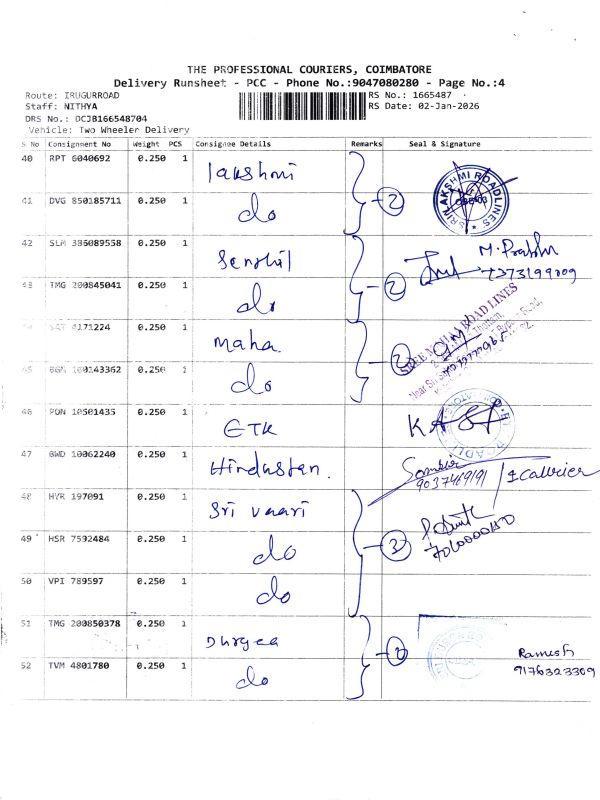 THE PROFESSIONAL COURIERS, COIMBATORE
Delivery Runsheet - PCC - Phone No.:9047080280 - Page No.:4
Route: IRUGURROAD
RS No.: 1665487
Staff: NITHYA
RS Date: 02-Jan-2026
DRS No.: DCJB166548704
Vehicle: Two Wheeler Delivery
S No Consignment No Weight PCS Consignee Details Remarks Seal & Signature
40 RPT 6040692 0.250 1 lakshmi
41 DVG 850185711 0.250 1 do 2
SRI LAKSHMI ROADLINES
42 SLM 386089558 0.250 1 M. Prabhu
43 TMG 200845041 0.250 1 do 2
SAT 4171224 0.250 1 maha
ROAD LINES
0.250 1 do 2
46 PON 10501435 0.250 1 ETK
47 GWD 10062240 0.250 1 Hindustan
9037469191
48 HVR 197091 0.250 1 Sri vaari
49 HSR 7592484 0.250 1 do 3
50 VPI 789597 0.250 1 do
51 TMG 200850378 0.250 1 Durgea
2
Ramesh
52 TVM 4801780 0.250 1 do
9176323309